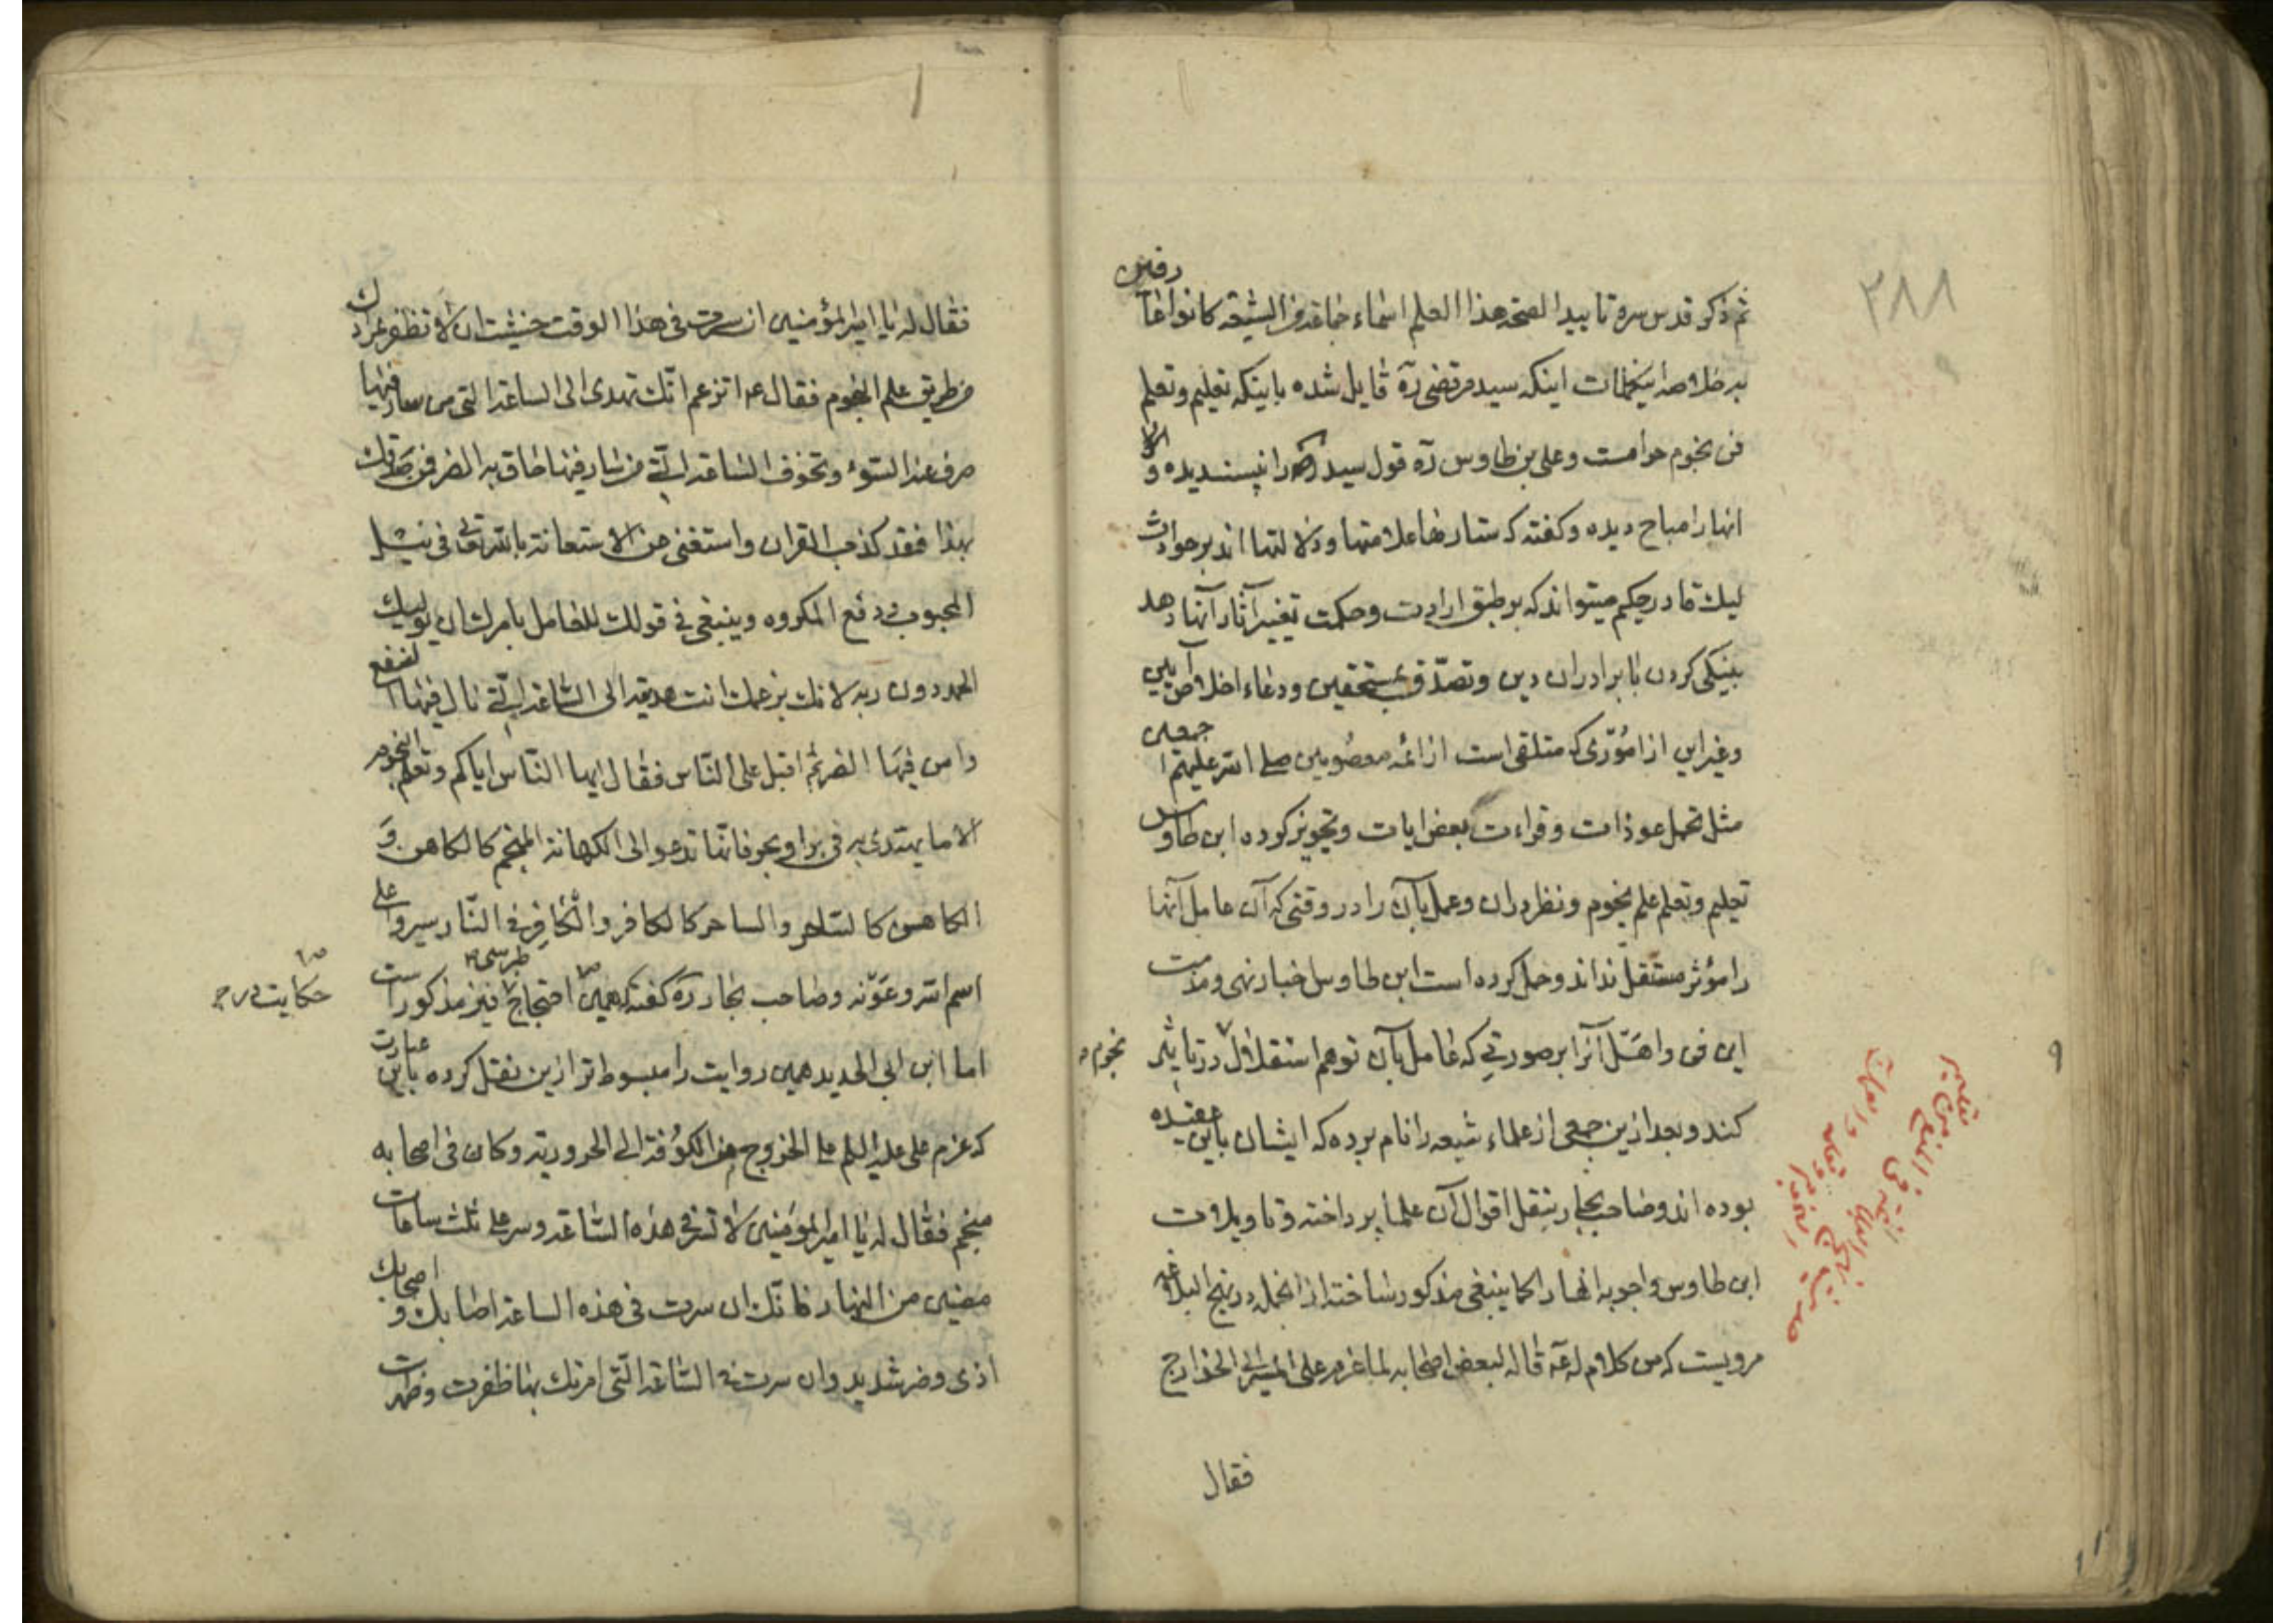 ٢٨٨
ثم ذكر قدس سره تاييدا لصحة هذا العلم اسماء جماعة من الشيعة كانوا عارفين
به خلاصه اينكلمات اينكه سيد مرتضى ره قايل شده باينكه تعليم وتعلم
فن نجوم حرامست وعلى بن طاوس ره قول سيد را نپسنديده و
انها را مباح ديده وكفته كه ستارها علامتها ودلالتها اند بر حوادث
ليك قادر حكيم ميتواند كه بر طبق ارادت وحكمت تغيير آثار آنها دهد
بنيكى كردن با برادران دين وتصدق بمستحقين ودعاء اخلاص آيين
وغير اين از امورى كه متلقى است از ائمه معصومين صلى الله عليهم اجمعين
مثل تحمل عوذات وقراءت بعض ايات وتجويز كرده ابن طاوس
تعليم وتعلم علم نجوم ونظر دران وعمل بآن را در وقتى كه آن عامل آنها
را مؤثر مستقل نداند وحمل كرده است ابن طاوس اخبار نهى ومذمت
اين فن واهل آنرا بر صورتى كه عامل بآن توهم استقلال نجوم در تاثير
كند وبعد ازين جمعى از علماء شيعه را نام برده كه ايشان باين عقيده
بوده اند وصاحب بحار بنقل اقوال آن علما پرداخته وتاويلات
ابن طاوس واجوبه انها را كما ينبغى مذكور ساخته از انجمله در نهج البلاغه
مرويست كه من كلام له عه قاله لبعض اصحابه لما عزم على المسير الى الخوارج
فقال
فقال له يا امير المؤمنين ان سرت فى هذا الوقت خشيت ان لا تظفر بمرادك
من طريق علم النجوم فقال عم اتزعم انك تهدى الى الساعة التى من سار فيها
صرف عنه السوء وتخوف الساعة التى من سار فيها حاق به الضر فمن صدقك
بهذا فقد كذب القران واستغنى عن الاستعانة بالله تعالى فى نيل
المحبوب ودفع المكروه وينبغى فى قولك للعامل بامرك ان يوليك
الحمد دون ربه لانك بزعمك انت هديته الى الساعة التى نال فيها النفع
وامن فيها الضر ثم اقبل على الناس فقال ايها الناس اياكم وتعلم النجوم
الا ما يهتدى به فى بر او بحر فانها تدعو الى الكهانة المنجم كالكاهن و
الكاهن كالساحر والساحر كالكافر والكافر فى النار سيروا على
اسم الله وعونه وصاحب بحار ره كفته همين حكايت در احتجاج طبرسى نيز مذكور است
اما ابن ابى الحديد همين روايت را مبسوط تر ازين نقل كرده باين عبارت
كه عزم على عليه السلم على الخروج من الكوفة الى الحرورية وكان فى اصحابه
منجم فقال له يا امير المؤمنين لا تسر فى هذه الساعة وسر على ثلث ساعات
مضين من النهار فانك ان سرت فى هذه الساعة اصابك و اصحابك
اذى وضر شديد وان سرت فى الساعة التى امرتك بها ظفرت وظهرت